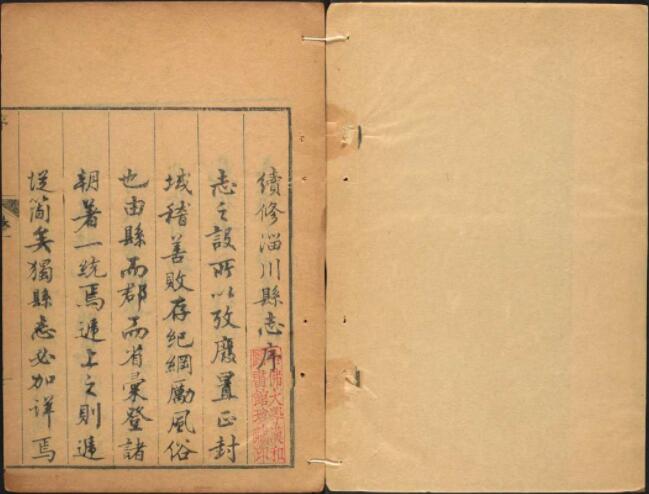 續修淄川縣志序
志之設所以攷廢置正封
域稽善敗存紀綱勵風俗
也由縣而郡而省彙登諸
朝著一統焉遞上之則遞
從簡矣獨縣志必加詳焉